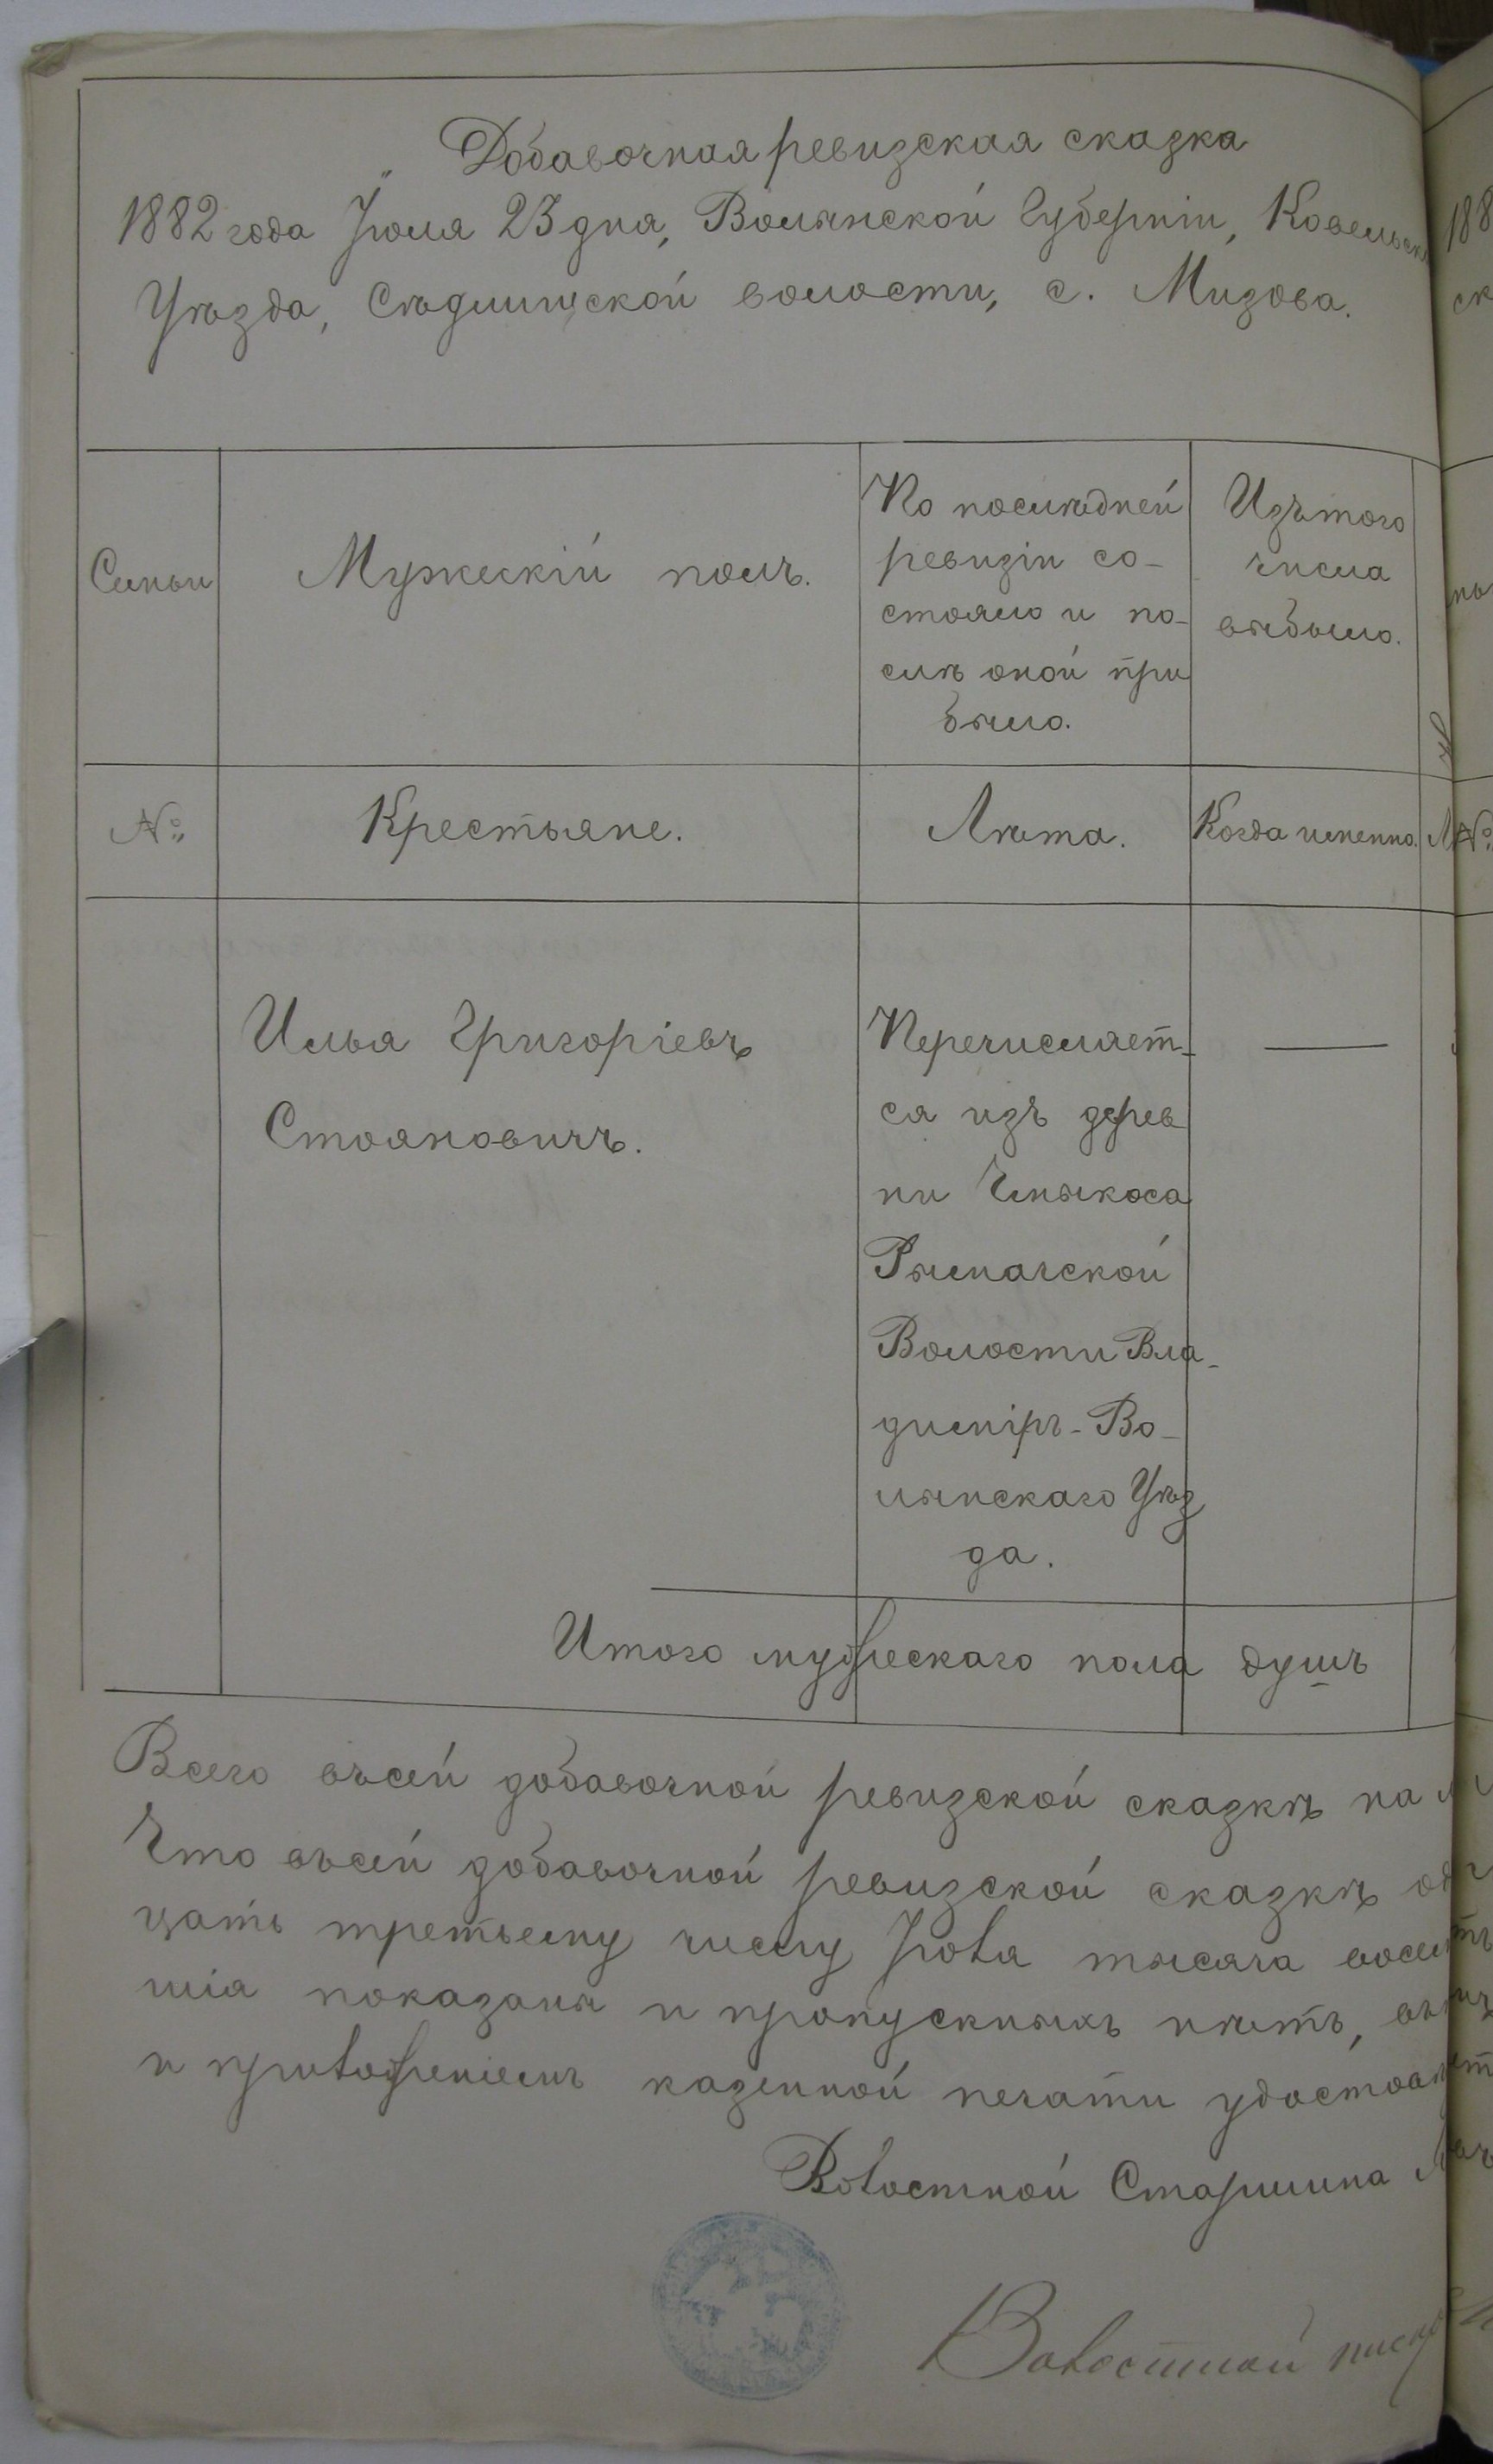 Добавочная ревизская сказка
1882 года Іюля 23 дня, Волынской Губерніи, Ковельска
Уѣзда, Сѣдлищской волости, с. Мизова.
Семьи
Мужескій полъ.
По послѣдней
ревизіи со-
стояло и по-
слѣ оной при
было.
Изъ того
числа
выбыло.
№
Крестьяне.
Лѣта.
Когда именно.
Илья Григоріевъ
Стояновичъ.
Перечисляет-
ся изъ дерев
ни Чмыкоса
Рымачской
Волости Вла-
диміръ-Во-
лынскаго Уѣз
да.
Итого мужескаго пола душъ
Всего въ сей добавочной ревизской сказкѣ на
Что въ сей добавочной ревизской сказкѣ
цать третьему числу Іюля тысяча восем
показаны и пропускныхъ нѣтъ,
и приложеніемъ казенной печати удостовѣ
Волостной Старшина
Волостной писарь